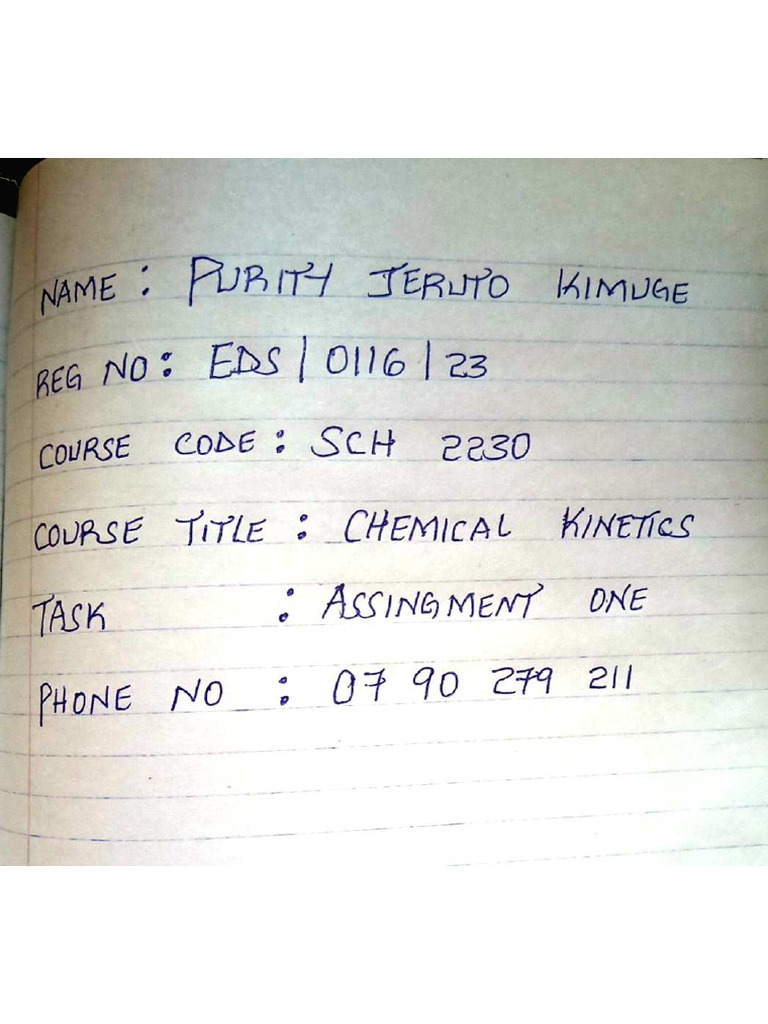 NAME : PURITY JERUTO KIMUGE
REG NO : EDS | 0116 | 23
COURSE CODE : SCH 2230
COURSE TITLE : CHEMICAL KINETICS
TASK : ASSINGMENT ONE
PHONE NO : 07 90 279 211